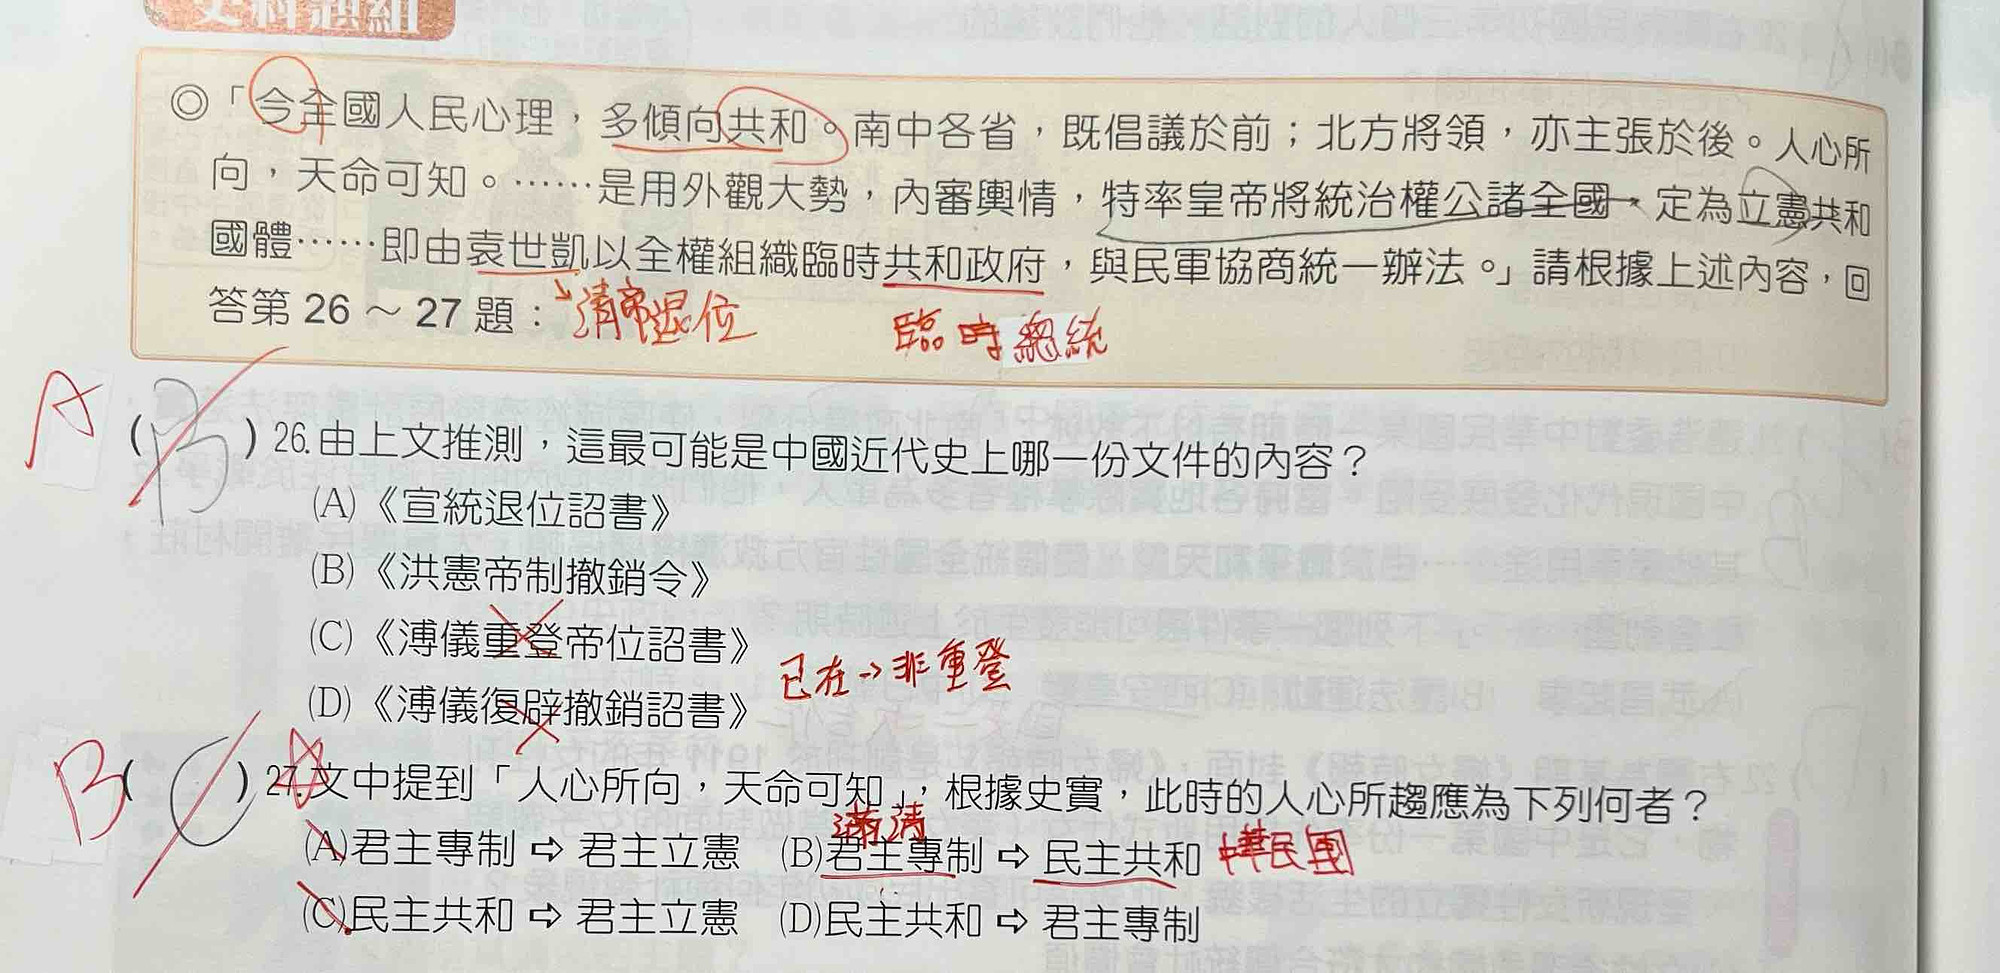 史料題組
◎「今全國人民心理，多傾向共和。南中各省，既倡議於前；北方將領，亦主張於後。人心所
向，天命可知。……是用外觀大勢，內審輿情，特率皇帝將統治權公諸全國，定為立憲共和
國體……即由袁世凱以全權組織臨時共和政府，與民軍協商統一辦法。」請根據上述內容，回
答第 26 ～ 27 題：
清帝退位
臨時總統
A
(B) 26.由上文推測，這最可能是中國近代史上哪一份文件的內容？
(A)《宣統退位詔書》
(B)《洪憲帝制撤銷令》
(C)《溥儀重登帝位詔書》
已在→非重登
(D)《溥儀復辟撤銷詔書》
B
(C) 27.文中提到「人心所向，天命可知」，根據史實，此時的人心所趨應為下列何者？
滿清
(A)君主專制 ⇨ 君主立憲 (B)君主專制 ⇨ 民主共和 中華民國
(C)民主共和 ⇨ 君主立憲 (D)民主共和 ⇨ 君主專制